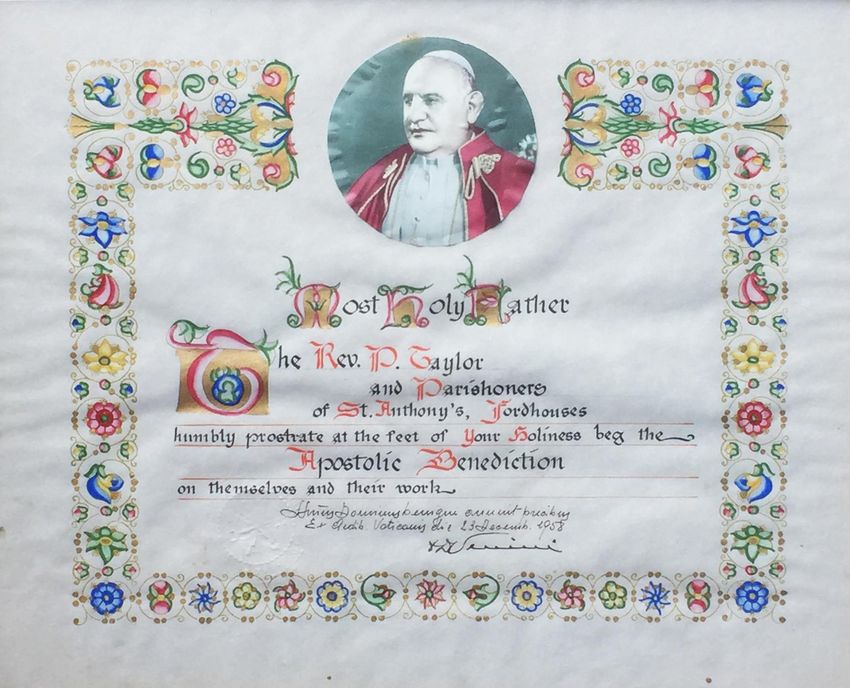 Most Holy Father
The Rev. P. Taylor
and Parishoners
of St. Anthony's, Fordhouses
humbly prostrate at the feet of Your Holiness beg the
Apostolic Benediction
on themselves and their work
benigne annuit precibus
Ex Aedib. Vaticanis die 23 Decemb. 1958